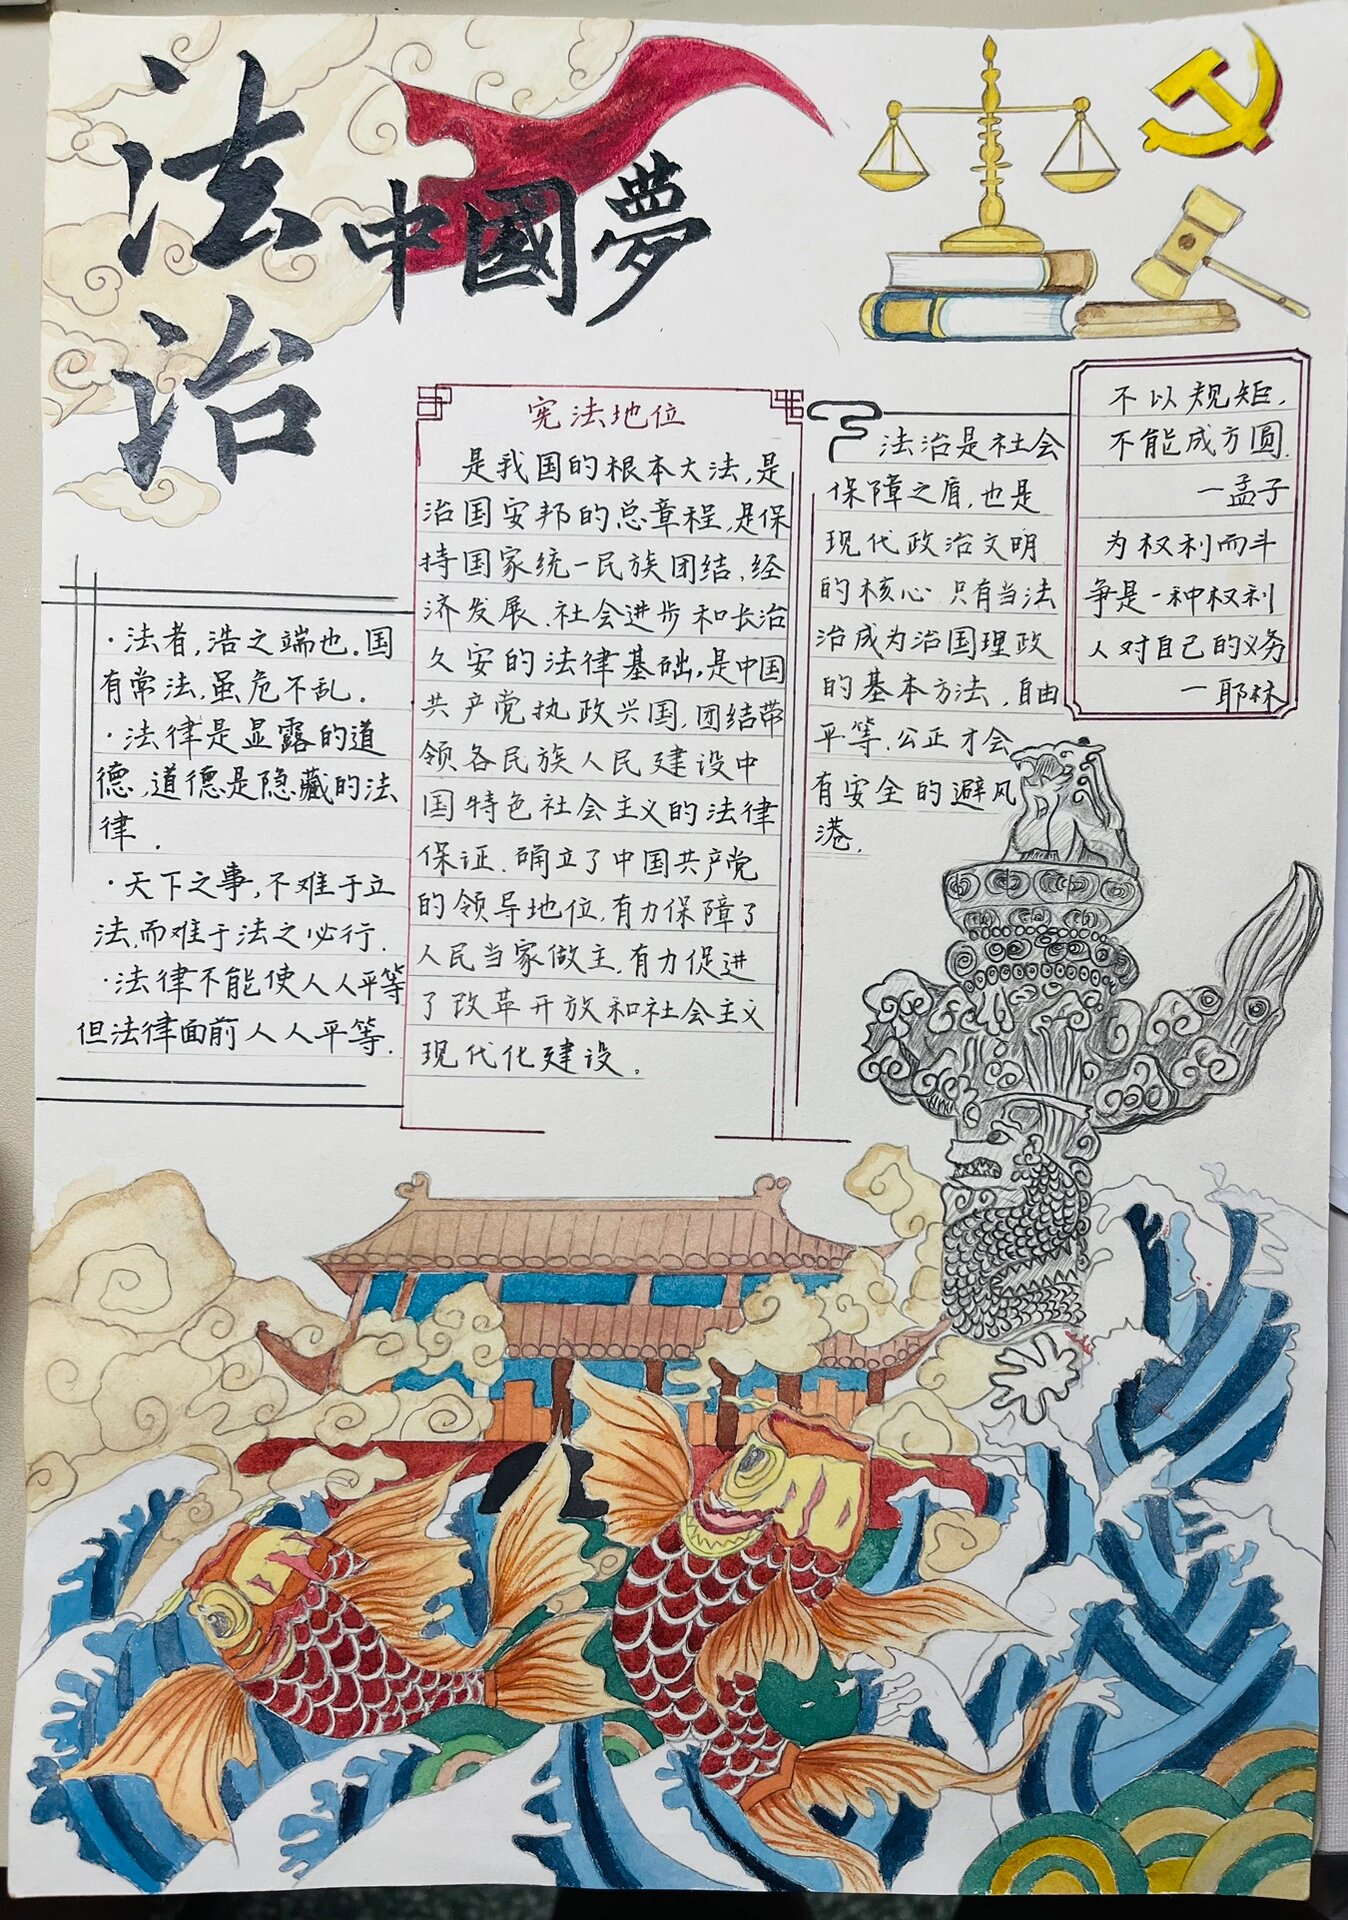 法治
中國夢
宪法地位
是我国的根本大法,是
治国安邦的总章程,是保
持国家统一民族团结、经
济发展、社会进步和长治
久安的法律基础,是中国
共产党执政兴国,团结带
领各民族人民建设中
国特色社会主义的法律
保证.确立了中国共产党
的领导地位,有力保障了
人民当家做主,有力促进
了改革开放和社会主义
现代化建设.
·法者,浩之端也.国
有常法,虽危不乱.
·法律是显露的道
德,道德是隐藏的法
律.
·天下之事,不难于立
法,而难于法之必行.
·法律不能使人人平等
但法律面前人人平等.
法治是社会
保障之盾,也是
现代政治文明
的核心.只有当法
治成为治国理政
的基本方法,自由
平等、公正才会
有安全的避风
港.
不以规矩,
不能成方圆.
—孟子
为权利而斗
争是一种权利
人对自己的义务
—耶林